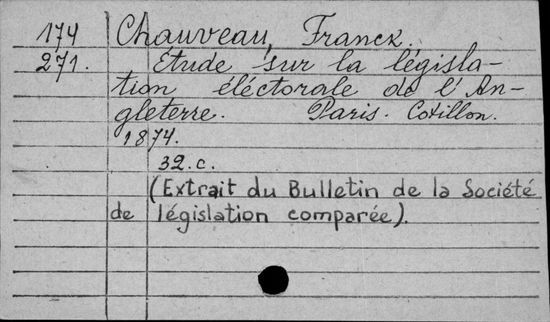 174 Chauveau, Franck.
271. Étude sur la législa-
tion éléctorale de l'An-
gleterre. Paris. Cotillon.
1874.
32.c.
(Extrait du Bulletin de la Société
de législation comparée).